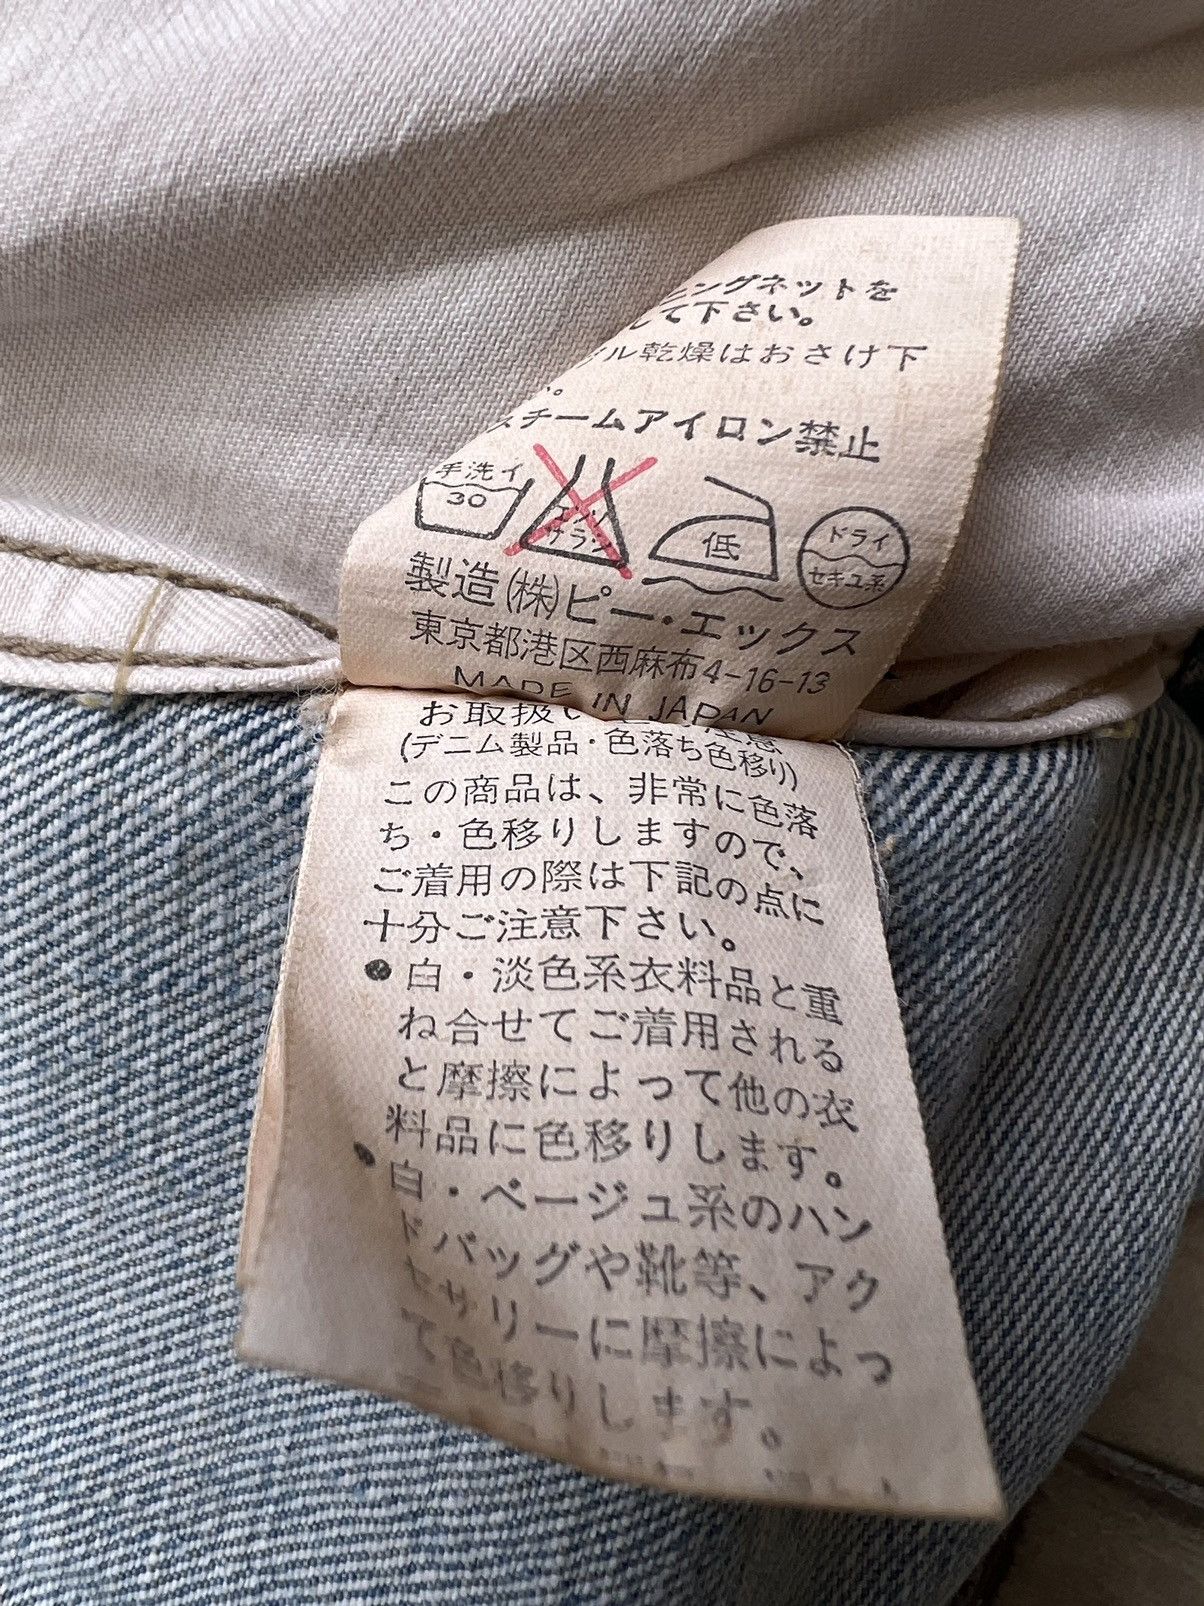 ニングネットを
して下さい。
ル乾燥はおさけ下
い。
スチームアイロン禁止
手洗イ
30
エンソ
サラシ
低
ドライ
セキユ系
製造(株)ピー・エックス
東京都港区西麻布4-16-13
MADE IN JAPAN
お取扱い注意
(デニム製品・色落ち色移り)
この商品は、非常に色落
ち・色移りしますので、
ご着用の際は下記の点に
十分ご注意下さい。
●白・淡色系衣料品と重
ね合せてご着用される
と摩擦によって他の衣
料品に色移りします。
●白・ベージュ系のハン
ドバッグや靴等、アク
セサリーに摩擦によっ
て色移りします。